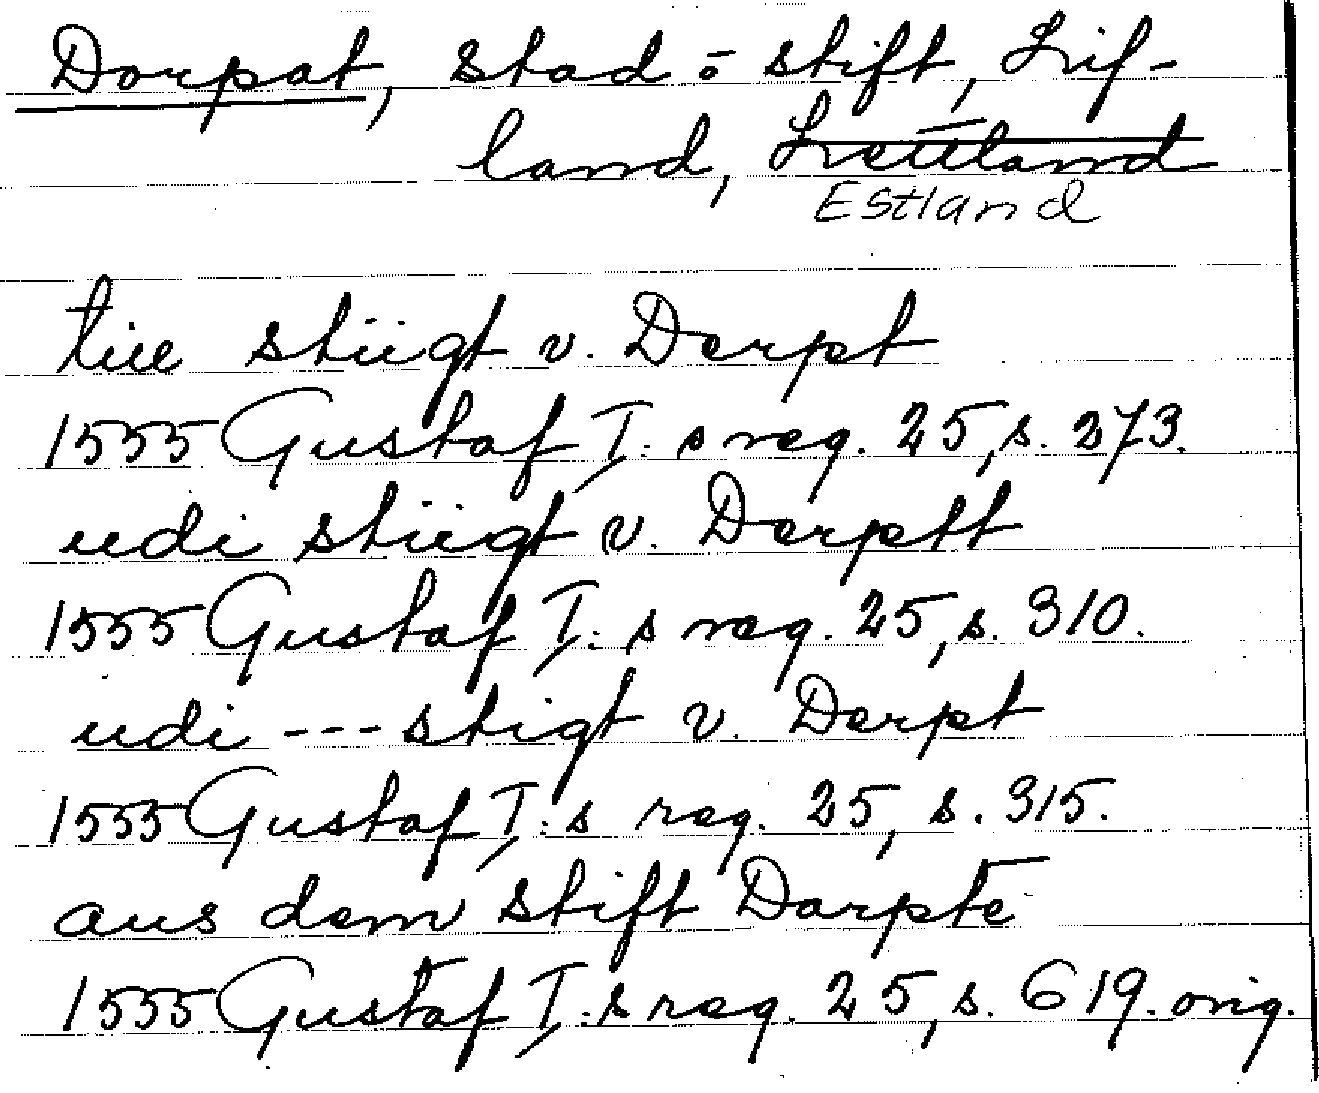 Dorpat, stad o stift, Lif-
land, Lettland
Estland
till stiigt v. Derpt
1555 Gustaf I:s reg. 25, s. 273.
udi stiigt v. Derptt
1555 Gustaf I:s reg. 25, s. 310.
udi --- stigt v. Derpt
1555 Gustaf I:s reg. 25, s. 315.
aus dem stift Darpte
1555 Gustaf I:s reg. 25, s. 619. orig.